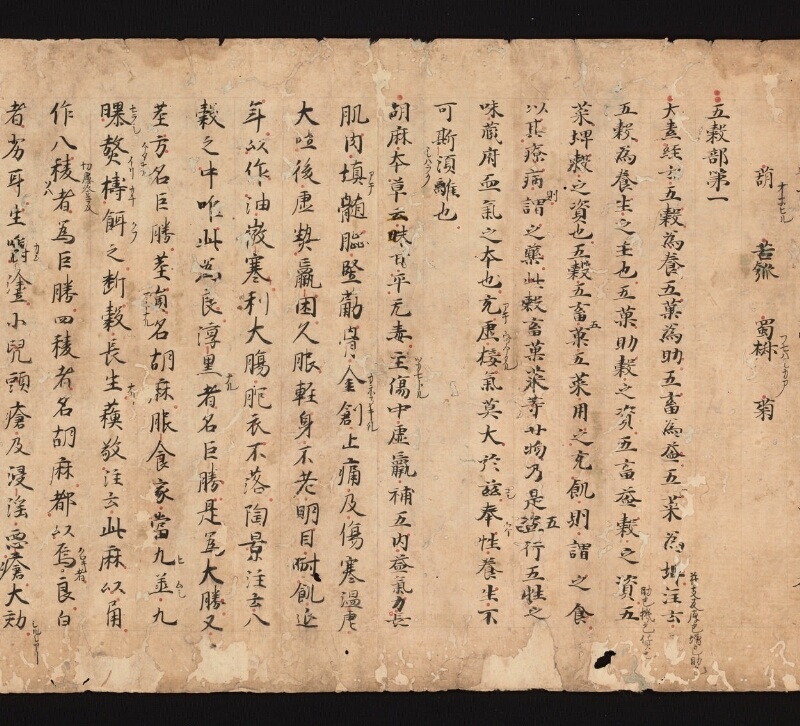 葫 苦瓠 蜀椒 菊
五穀部第一
大素経云五穀為養五菓為助五畜為益五菜為埤注云
五穀為養生之主也五菓助穀之資五畜益穀之資五
菜埤穀之資也五穀五畜五菓五菜用之充飢則謂之食
以其療病則謂之藥此穀畜菓菜等廿物乃是五行五性之
味蔵府血氣之本也充虚接氣莫大於茲奉性養生不
可斯須離也
胡麻本草云味甘平无毒主傷中虚羸補五内益氣力長
肌肉填髓脳堅筋骨金創止痛及傷寒温瘧
大吐後虚熱羸困久服軽身不老明目耐飢延
年以作油微寒利大腸胞衣不落陶景注云八
穀之中唯此為良淳黒者名巨勝是為大勝又
茎方名巨勝茎員名胡麻服食家當九蒸九
曝熬擣餌之断穀長生蘇敬注云此麻以角
作八稜者為巨勝四稜者名胡麻都以烏良白
者劣耳生嚼塗小兒頭瘡及浸淫悪瘡大効